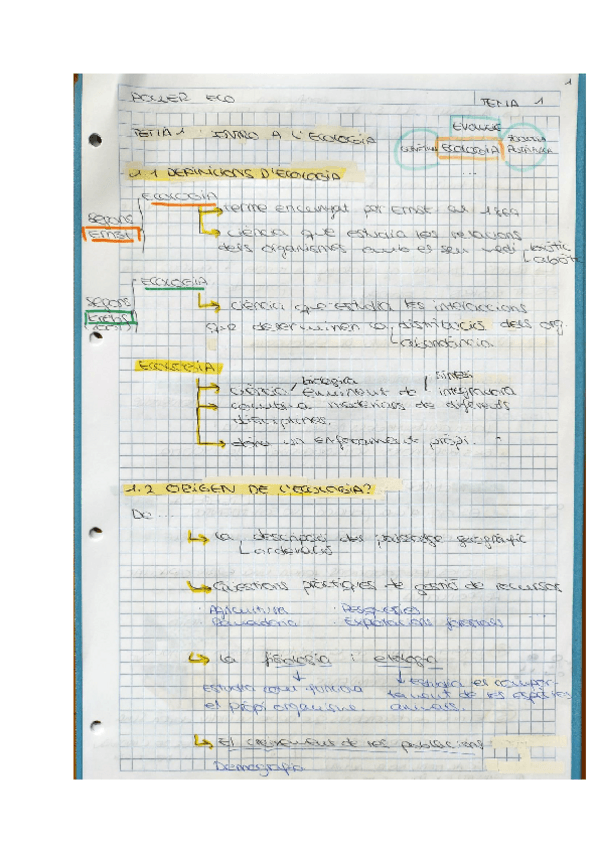 DOSSIER ECO
TEMA 1
1
TEMA 1: INTRO A L'ECOLOGIA
EVOLUCIÓ
GENÈTICA ECOLOGIA
...
1.1 DEFINICIONS D'ECOLOGIA
ECOLOGIA
Segons Ernst
terme encunyat per Ernst el 1869
ciència que estudia les relacions
dels organismes amb el seu medi biòtic
abiòtic
ECOLOGIA
Segons Krebs
ciència que estudia les interaccions
que determinen la distribució dels org.
abundància
ECOLOGIA
ciència biològica síntesi
eminentment de integradora
combina matèries de diferents
disciplines.
dóna un enfocament propi.
1.2 ORIGEN DE L'ECOLOGIA?
De...
la descripció del paisatge geogràfic
ordenació
Qüestions pràctiques de gestió de recursos
· Agricultura · Pesqueries
· Ramaderia · Explotacions forestals
la fisiologia i etologia
estudia com funciona estudia el compor-
el propi organisme. tament de les espècies
animals.
El creixement de les poblacions
Demografia